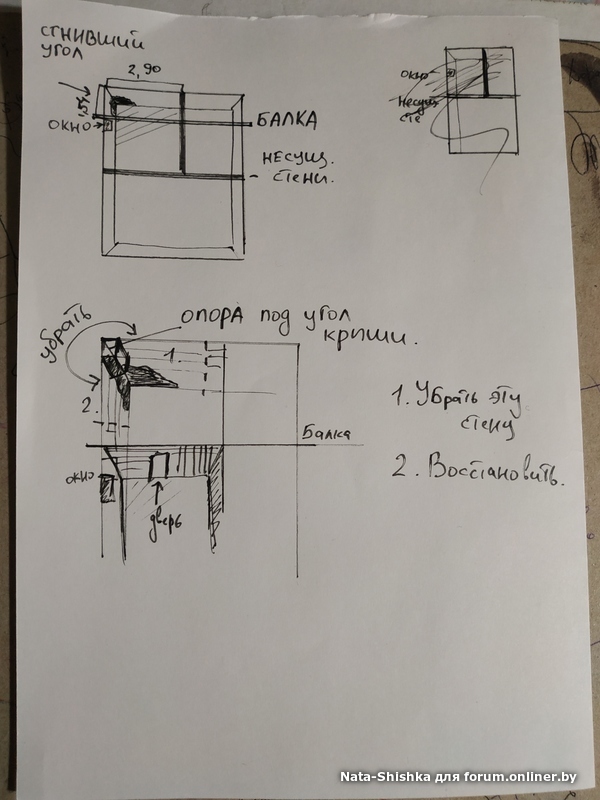 СГНИВШИЙ
УГОЛ
2,90
ОКНО
БАЛКА
НЕСУЩ.
СТЕНИ.
ОКНО
НЕСУЩ
СТЕ
УБРАТЬ
ОПОРА ПОД УГОЛ
КРИШИ.
1.
2.
Балка
ОКНО
дверь
1. Убрать эту
стену
2. Восстановить.
Nata-Shishka для forum.onliner.by